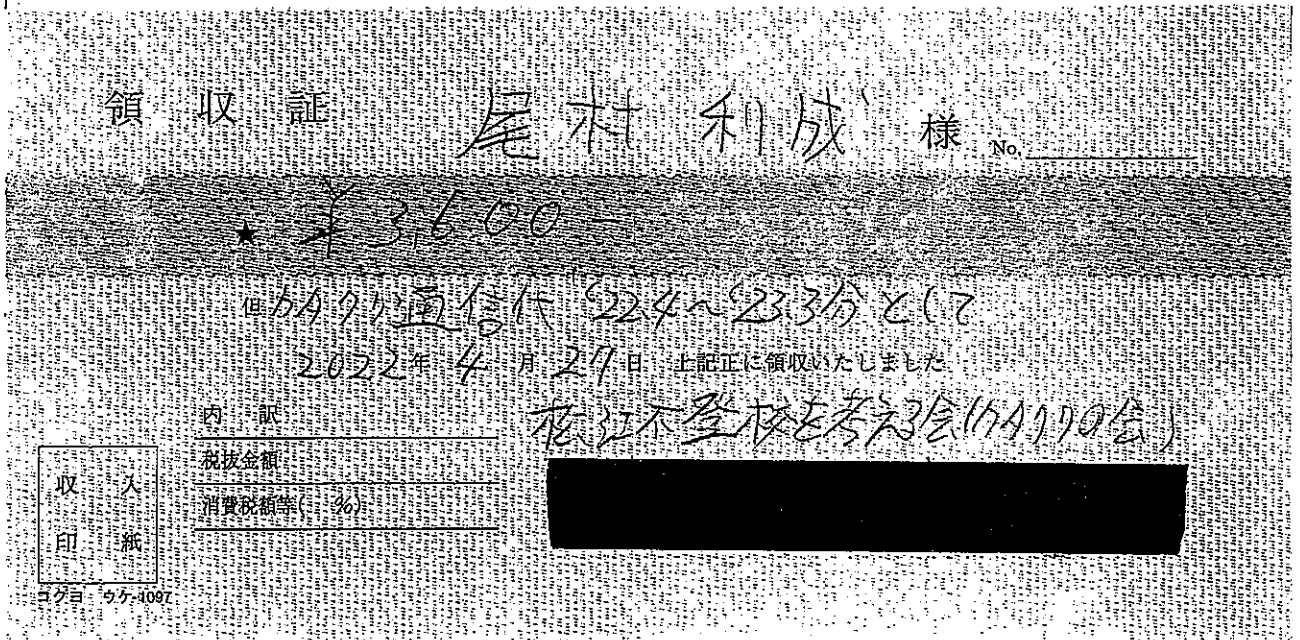 領収証 尾村利成 様 No.
★ ¥3,600-
但 カタクリ通信代 '22.4〜'23.3分として
2022年 4月 27日 上記正に領収いたしました
内訳
松江不登校を考える会(カタクリの会)
税抜金額
消費税額等( %)
収入
印紙
コクヨ ウケ-1097